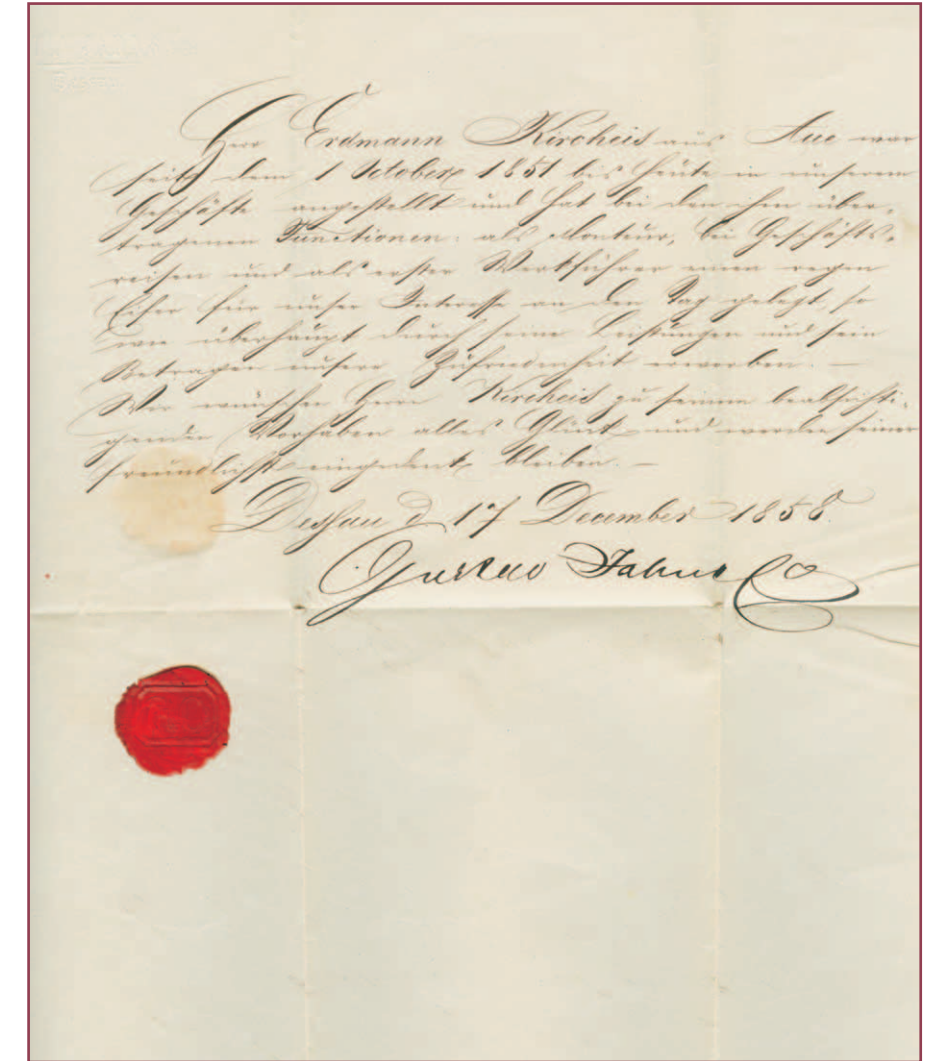 Herr Erdmann Kircheis aus Aue war
seit dem 1 October 1851 bis heute in unserem
Geschäfte angestellt und hat bei den ihm über-
tragenen Functionen: als Monteur, bei Geschäfts-
reisen und als erster Werkführer einen regen
Eifer für unser Interesse an den Tag gelegt, so
wie überhaupt durch seine Leistungen und sein
Betragen unsere Zufriedenheit erworben. —
Wir wünschen Herrn Kircheis zu seinem beabsichti-
genden Vorhaben alles Glück und werden seiner
freundlichst eingedenk bleiben. —
Dessau d 17 December 1858.
Gustav Jahn Co